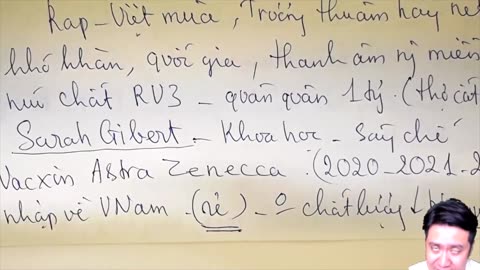 Rap_Việt mùa, Trường thuâm hay
khó khăn, quốc gia, thanh âm miền
núi chất RV3 _ quán quân 1 tỷ. (thợ cắt
Sarah Gibert _ Khoa học _ Saý chế
Vacxin Astra Zenecca. (2020_2021_2
nhập về VNam. (rẻ) _ chất lượng ↓